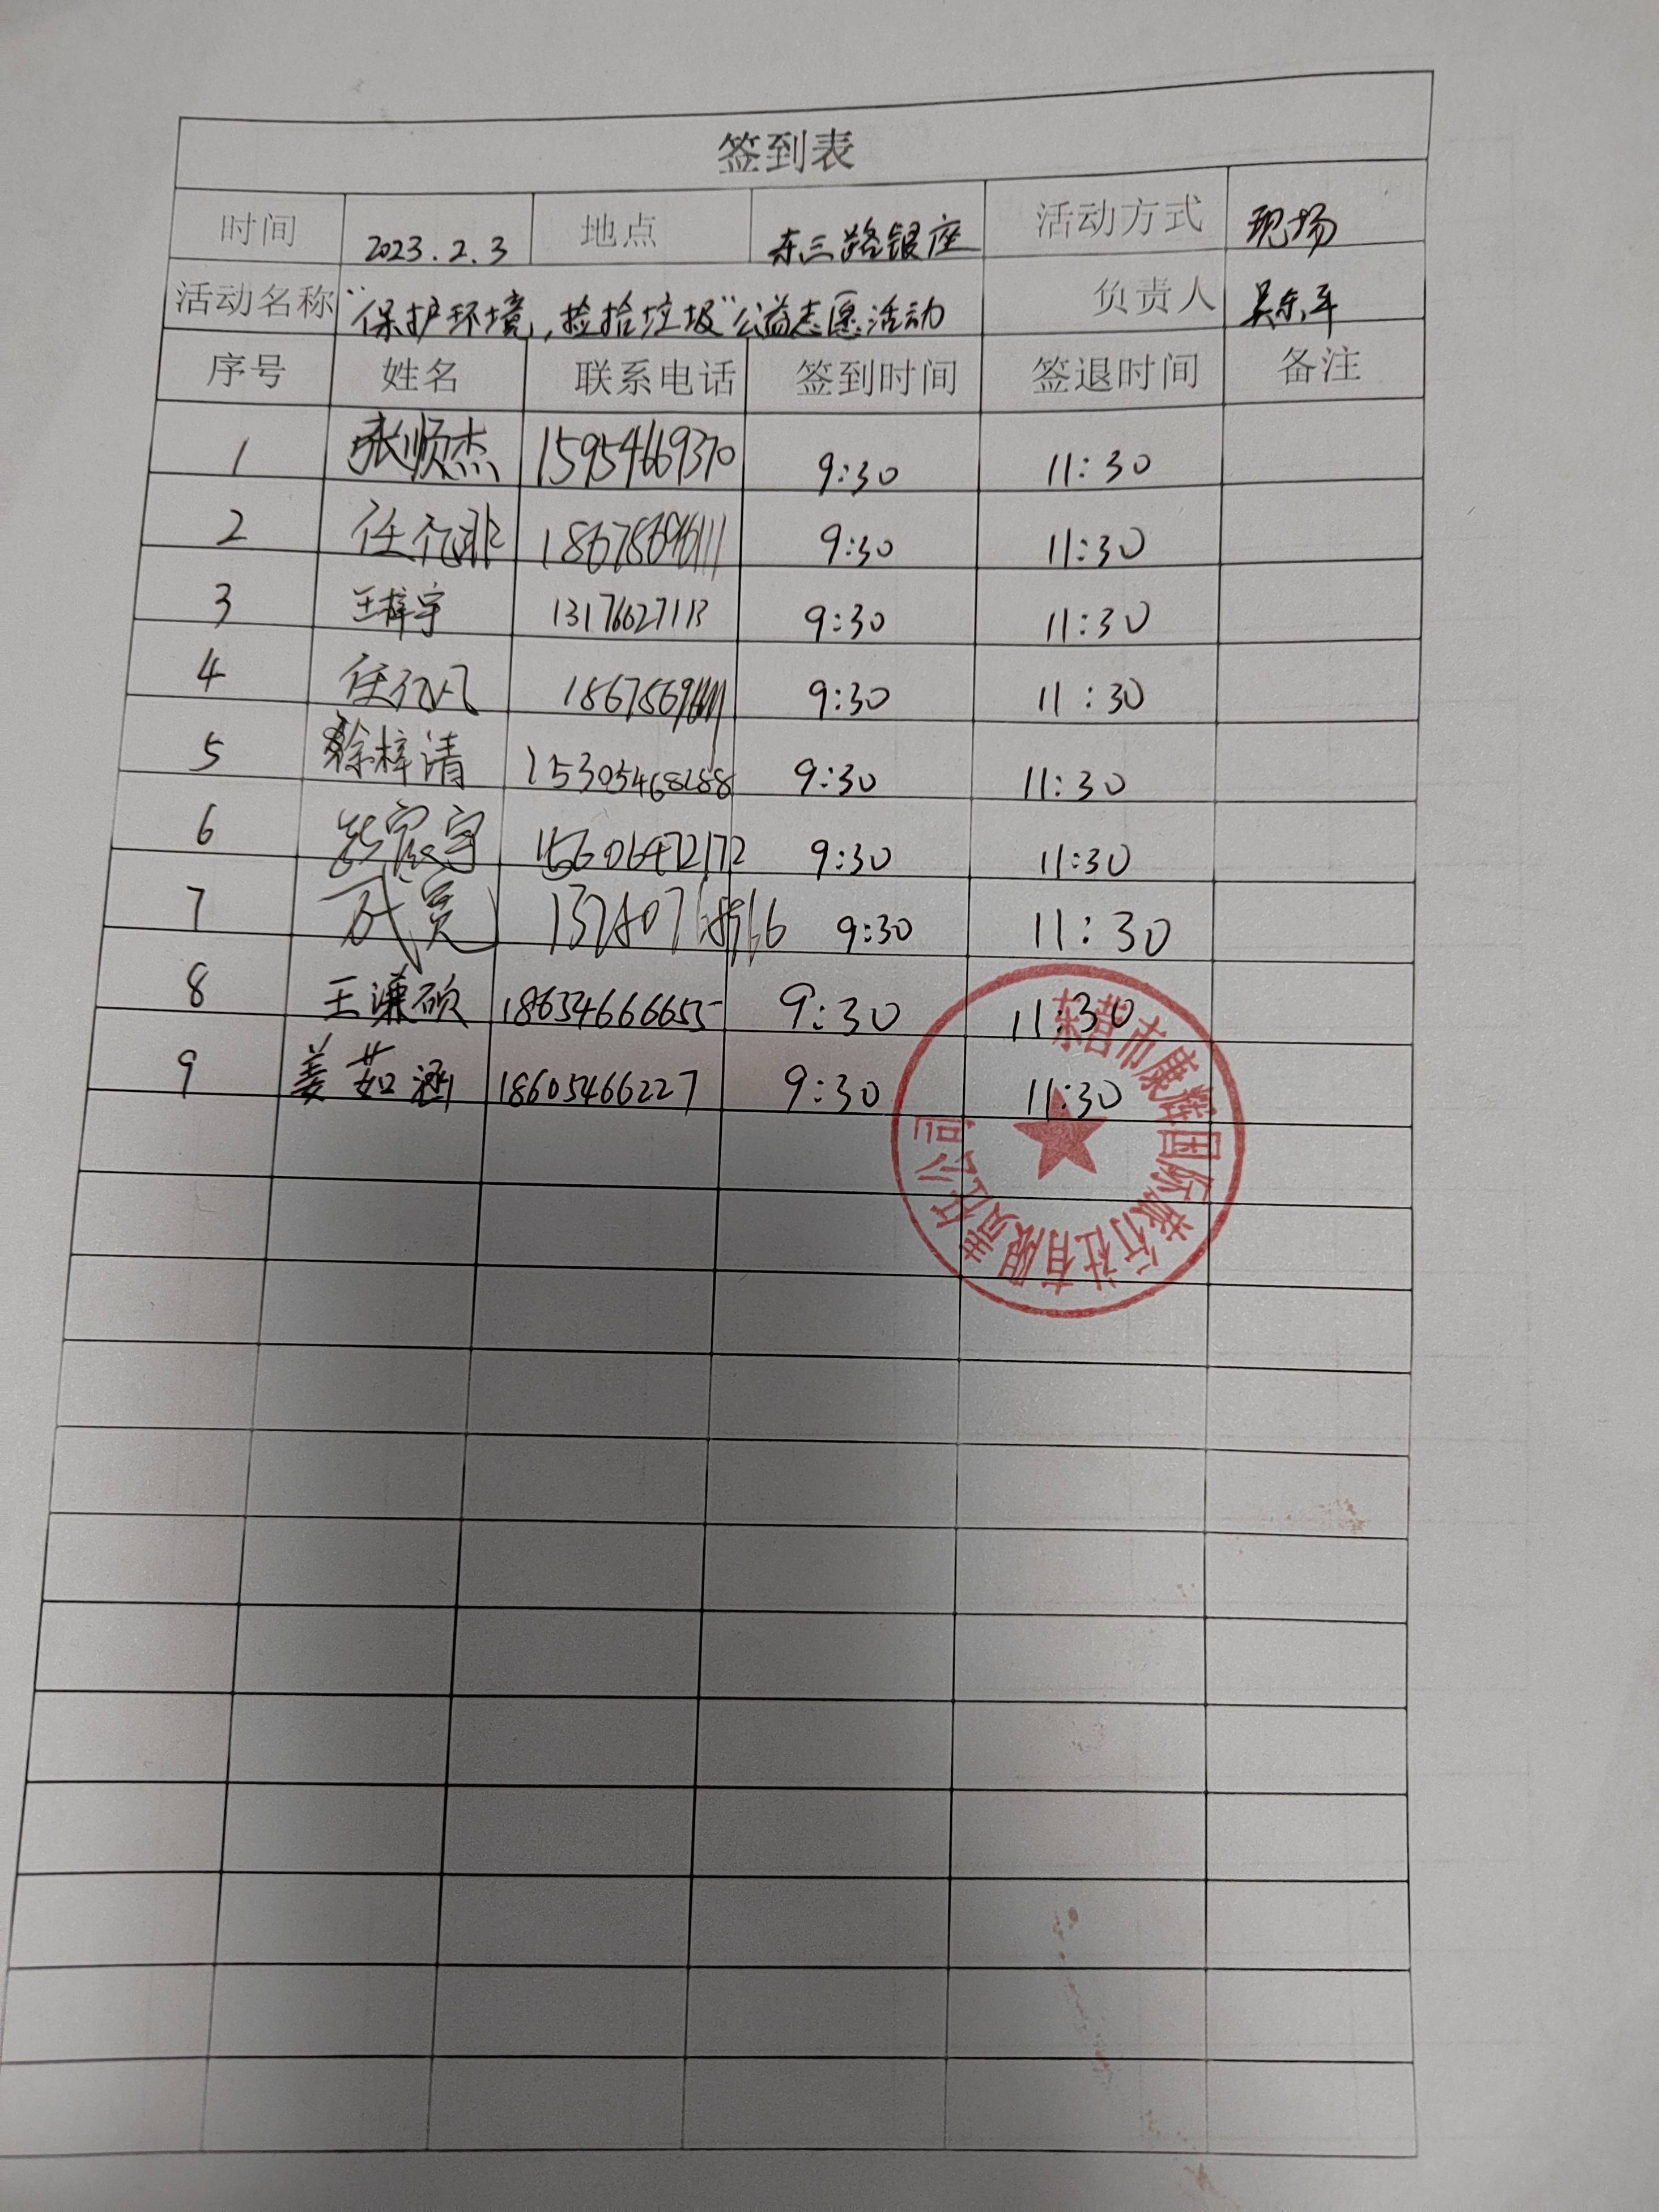 签到表
时间 2023.2.3 地点 东三路银座 活动方式 现场
活动名称 "保护环境,捡拾垃圾"公益志愿活动 负责人 吴东平
序号 姓名 联系电话 签到时间 签退时间 备注
1 张顺杰 15954669370 9:30 11:30
2 任行非 9:30 11:30
3 王梓宇 9:30 11:30
4 任行凡 9:30 11:30
5 徐梓清 9:30 11:30
6 宸宇 15606472172 9:30 11:30
7 9:30 11:30
8 王濂硕 18654666655 9:30 11:30
9 姜茹涵 18605466227 9:30 11:30
东营市康辉国际旅行社有限责任公司